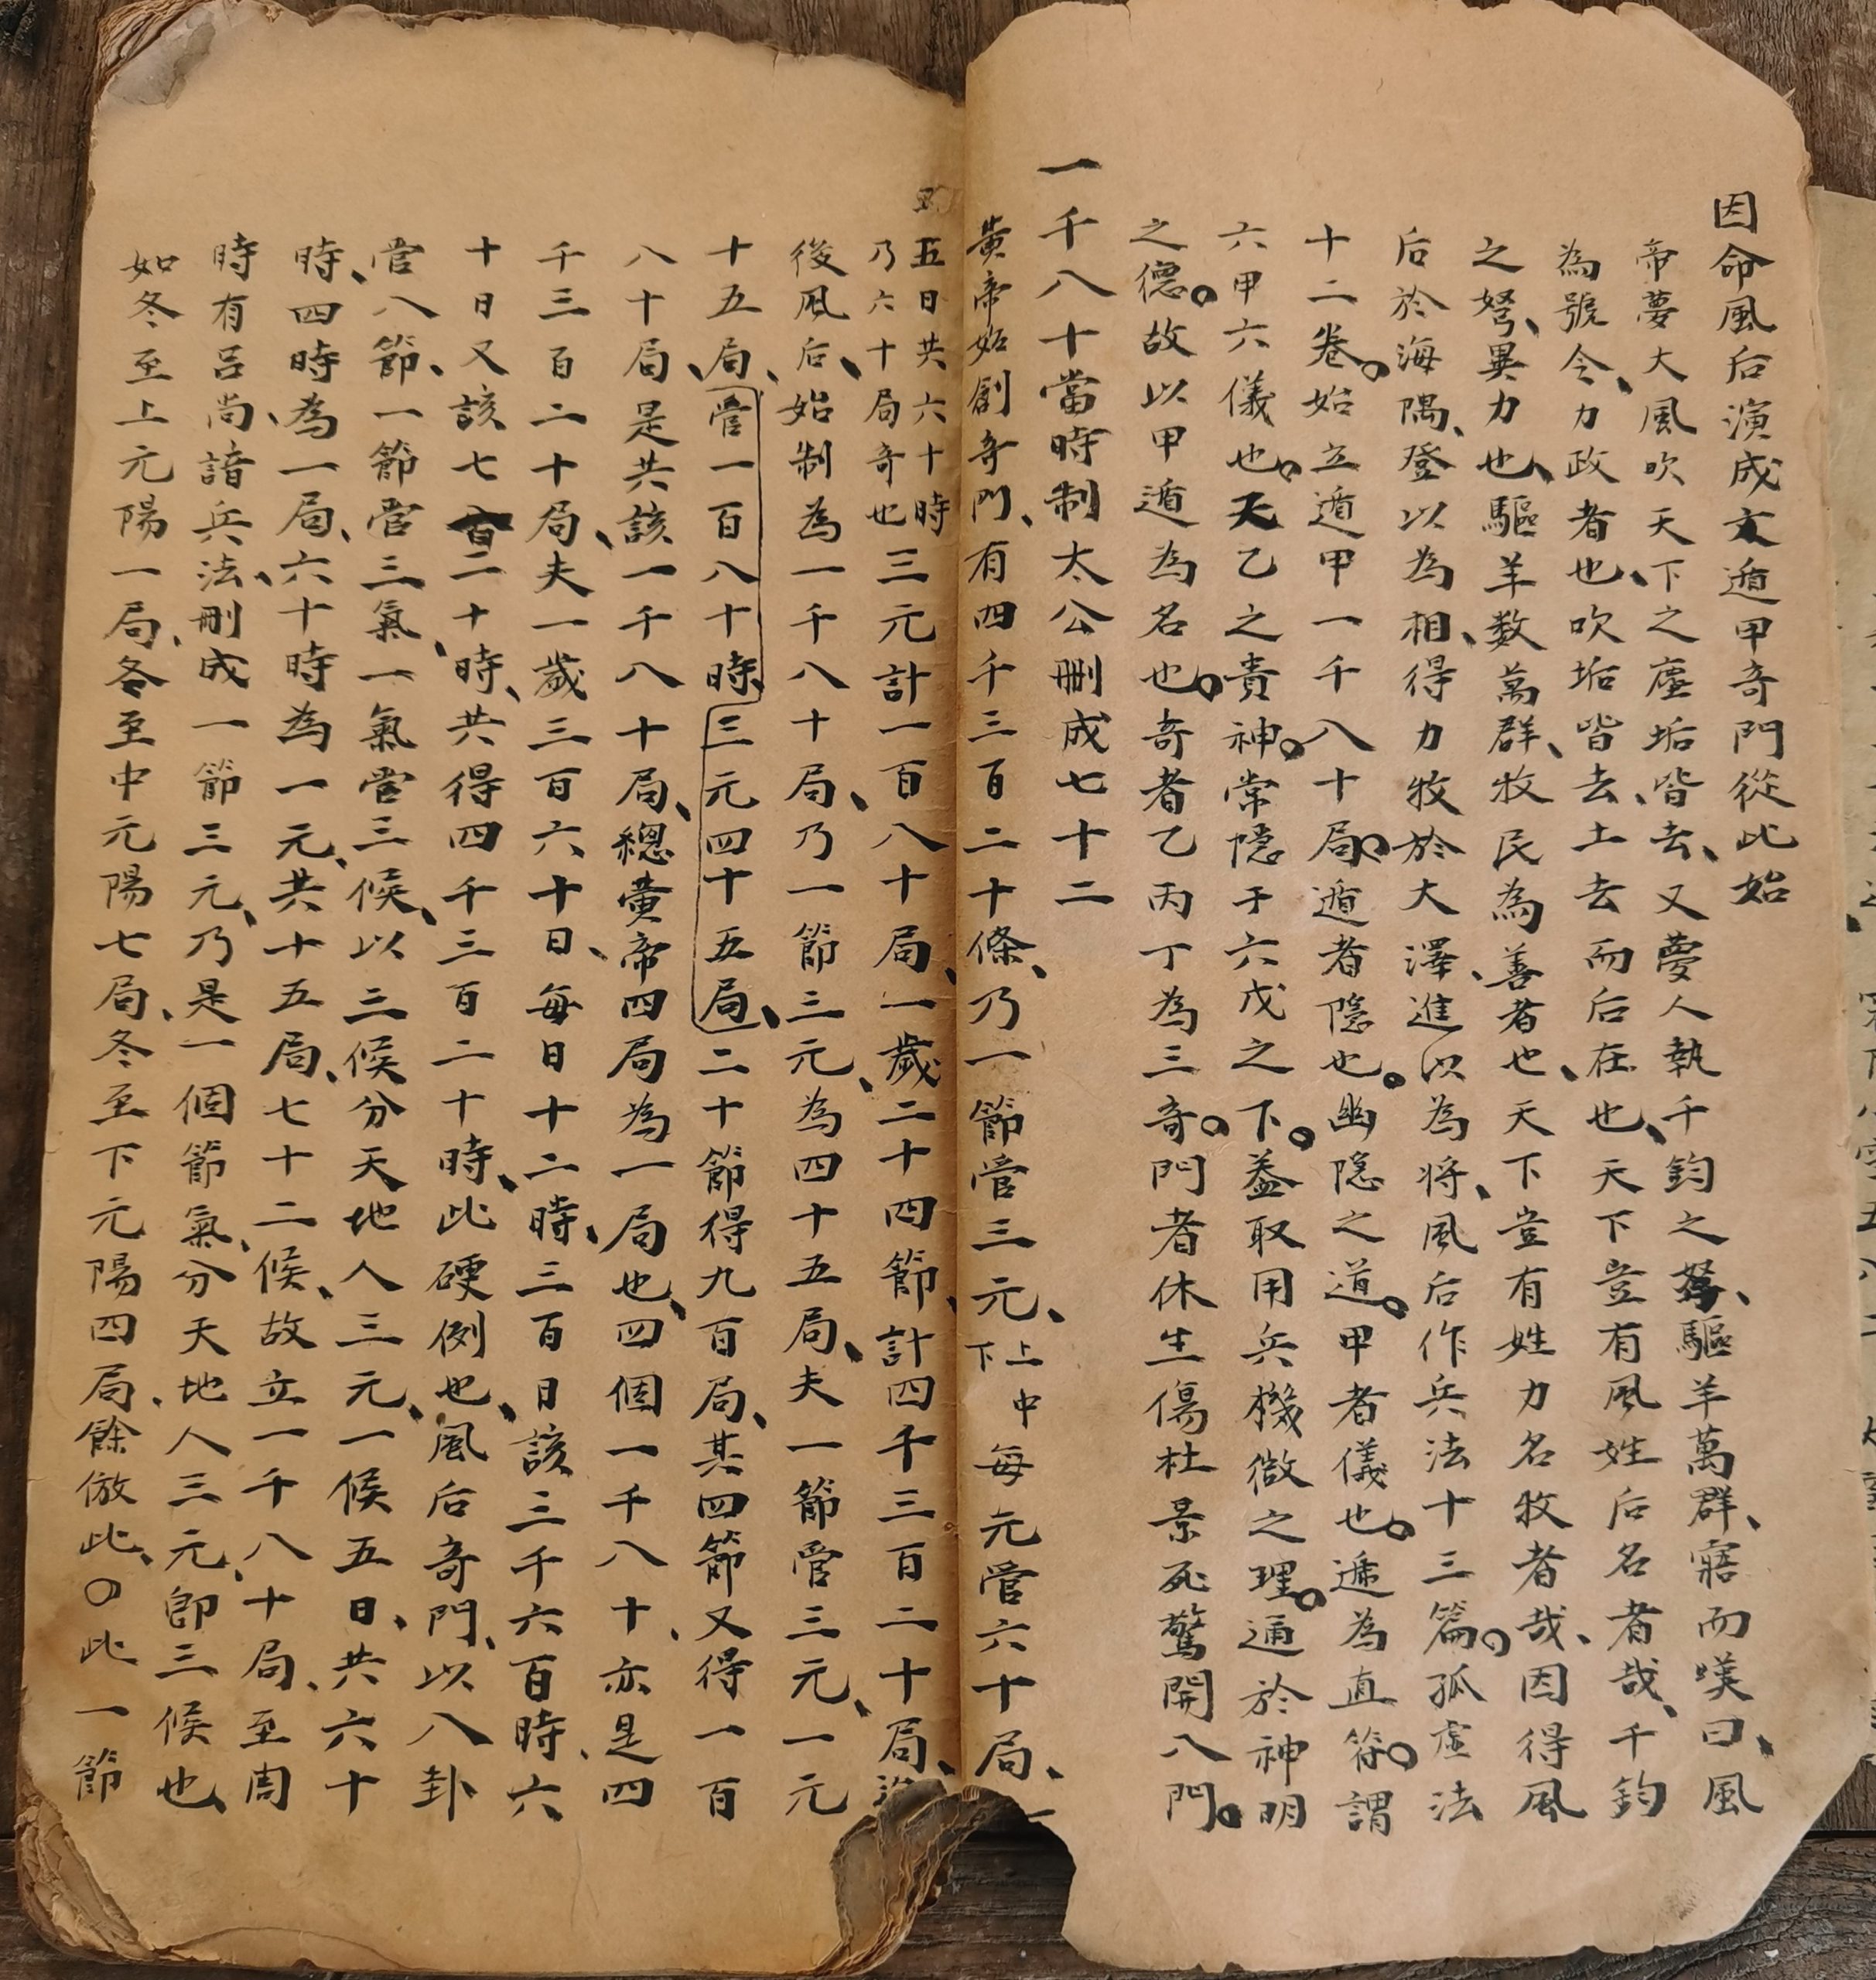 因命風后演成文遁甲奇門從此始
帝夢大風吹天下之塵垢皆去、又夢人執千鈞之弩、驅羊萬群、寤而嘆曰、風
為號令、力政者也、吹垢皆去、土去而后在也、天下豈有風姓后名者哉、千鈞
之弩、異力也、驅羊数萬群、牧民為善者也、天下豈有姓力名牧者哉、因得風
后於海隅、登以為相、得力牧於大澤、進以為将、風后作兵法十三篇。孤虛法
十二卷。始立遁甲一千八十局。遁者隱也。幽隱之道。甲者儀也。遞為直符。謂
六甲六儀也。天乙之貴神。常隱于六戊之下。蓋取用兵機微之理。通於神明
之德。故以甲遁為名也。奇者乙丙丁為三奇。門者休生傷杜景死驚開八門。
一千八十當時制太公刪成七十二
黃帝始創奇門、有四千三百二十條、乃一節管三元、上中下每元管六十局、一
五日共六十時
乃六十局奇也三元計一百八十局、一歲二十四節、計四千三百二十局、
後風后、始制為一千八十局、乃一節三元、為四十五局、夫一節管三元、一元
十五局、管一百八十時、三元四十五局、二十節得九百局、其四節又得一百
八十局、是共該一千八十局、總黃帝四局為一局也、四個一千八十、亦是四
千三百二十局、夫一歲三百六十日、每日十二時、三百日該三千六百時、六
十日又該七百二十時、共得四千三百二十時、此硬例也、風后奇門、以八卦
管八節、一節管三氣、一氣管三候、以三候分天地人三元、一候五日、共六十
時、四時為一局、六十時為一元、共十五局、七十二候、故立一千八十局、至周
時有呂尚、諳兵法、刪成一節三元、乃是一個節氣、分天地人三元、即三候也、
如冬至上元陽一局、冬至中元陽七局、冬至下元陽四局、餘倣此、〇此一節